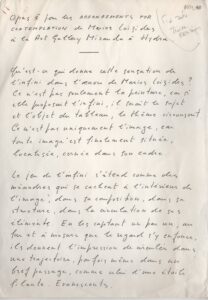 après ê pour les ARRANGEMENTS FOR
CONTEMPLATION de Marios Loizides
à la Art Gallery Miranda à Hydra
Qu'est-ce qui donne cette sensation de
l'infini dans l'œuvre de Marios Loizides ?
Ce n'est pas seulement la peinture, car si
elle présuppose l'infini, il serait le sujet
et l'objet du tableau, le thème circonscrit.
Ce n'est pas uniquement l'image, car
toute image est finalement située,
localisée, ornée dans son cadre
Le jeu de l'infini s'étend comme des
méandres qui se cachent à l'intérieur de
l'image, dans sa composition, dans sa
structure, dans la modulation de ses
éléments. En les captant un peu, au
fur et à mesure que le regard s'y enfonce,
ils donnent l'impression de
une trajectoire, parfois même dans un
bref passage, comme celui d'une étoile
filante. Evanescents.